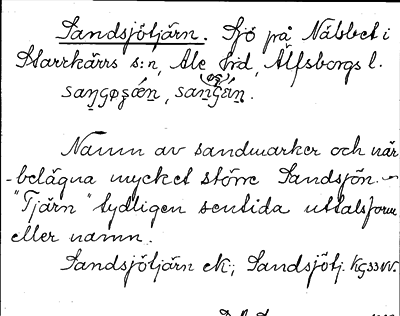 Sandsjötjärn. Sjö på Näbbet i
Starrkärrs s:n, Ale hd, Älfsborgs l.
Namn av sandmarker och när-
belägna mycket större Sandsjön. –
"Tjärn" tydligen sentida uttalsform
eller namn.
Sandsjötjärn ek.; Sandsjötj. KG33VV.